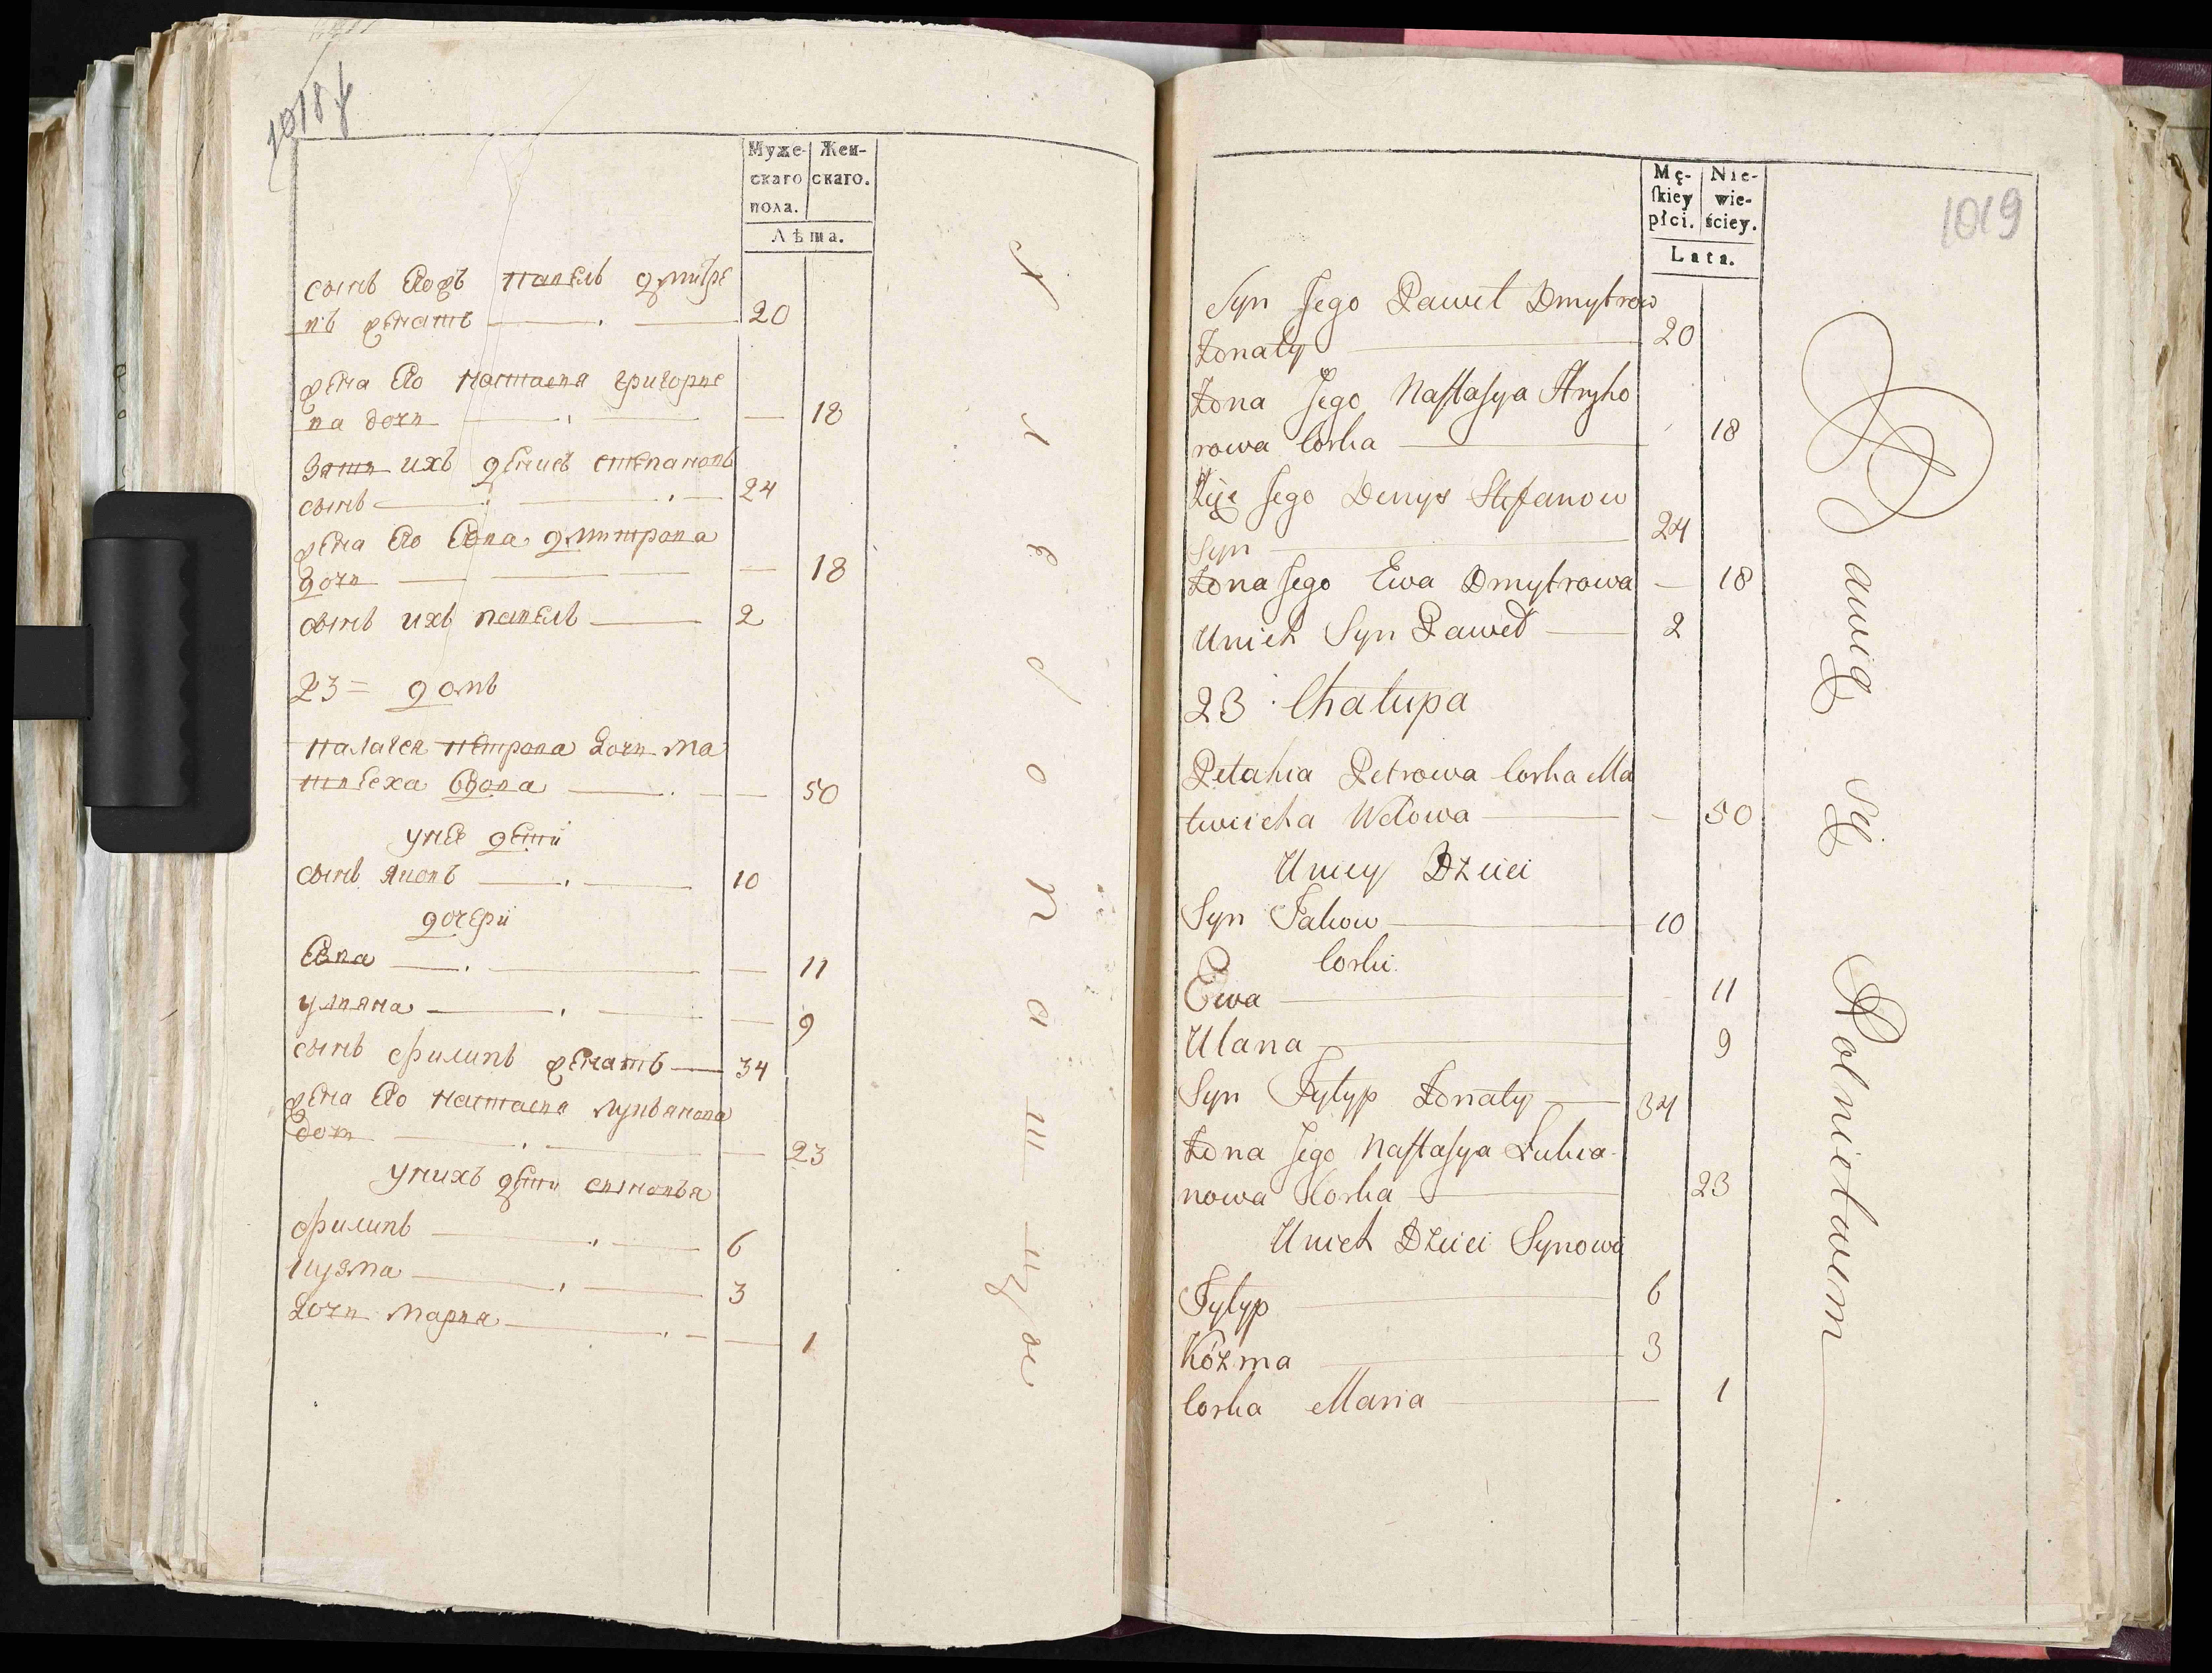 Муже-
скаго
пола.
Жен-
скаго.
Лѣта.
сынъ Его павелъ дмитре
въ женатъ 20
жена Его настасия григорие
ва дочи 18
зяти ихъ денисъ степановъ
сынъ 24
жена Его Ева дмитрова
дочи 18
сынъ ихъ павелъ 2
23 = домъ
палагея петрова дочи ма
твѣеха вдова 50
унее дети
сынъ яковъ 10
дочери
Ева 11
уляна 9
сынъ филипъ женатъ 34
жена Его настасия лукьянова
дочи 23
унихъ дети сыновья
филипъ 6
кузма 3
дочи мария 1
1019
Mę-
ſkiey
płci.
Nie-
wie-
ściey.
Lata.
Syn Jego Paweł Dmytrow
Żonaty 20
Żona Jego Naſtaſya Hryho
rowa Corka 18
Zięć Jego Denys Stefanow
Syn 24
Żona Jego Ewa Dmytrowa 18
Unich Syn Paweł 2
23 Chałupa
Pelahia Petrowa Corka Ma
twiicha Wdowa 50
Uniey Dzieci
Syn Jakow 10
Corki
Ewa 11
Ulana 9
Syn Fylyp Żonaty 34
Żona Jego Naſtaſya Lukia-
nowa Corka 23
Unich Dzieci Synowi
Fylyp 6
Kózma 3
Corka Maria 1
Bawią się Rolnictwem